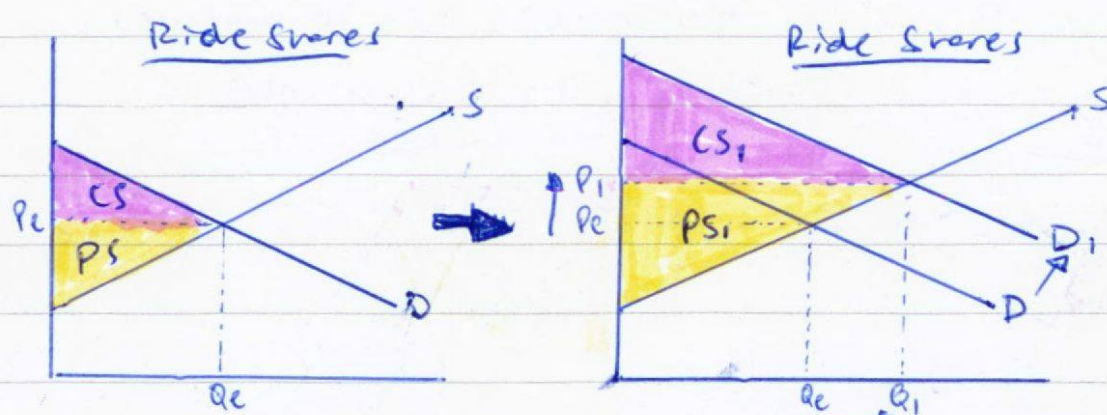 Ride Shares
S
CS
Pe
PS
D
Qe
Ride Shares
S
CS1
P1
Pe
PS1
D1
D
Qe
Q1